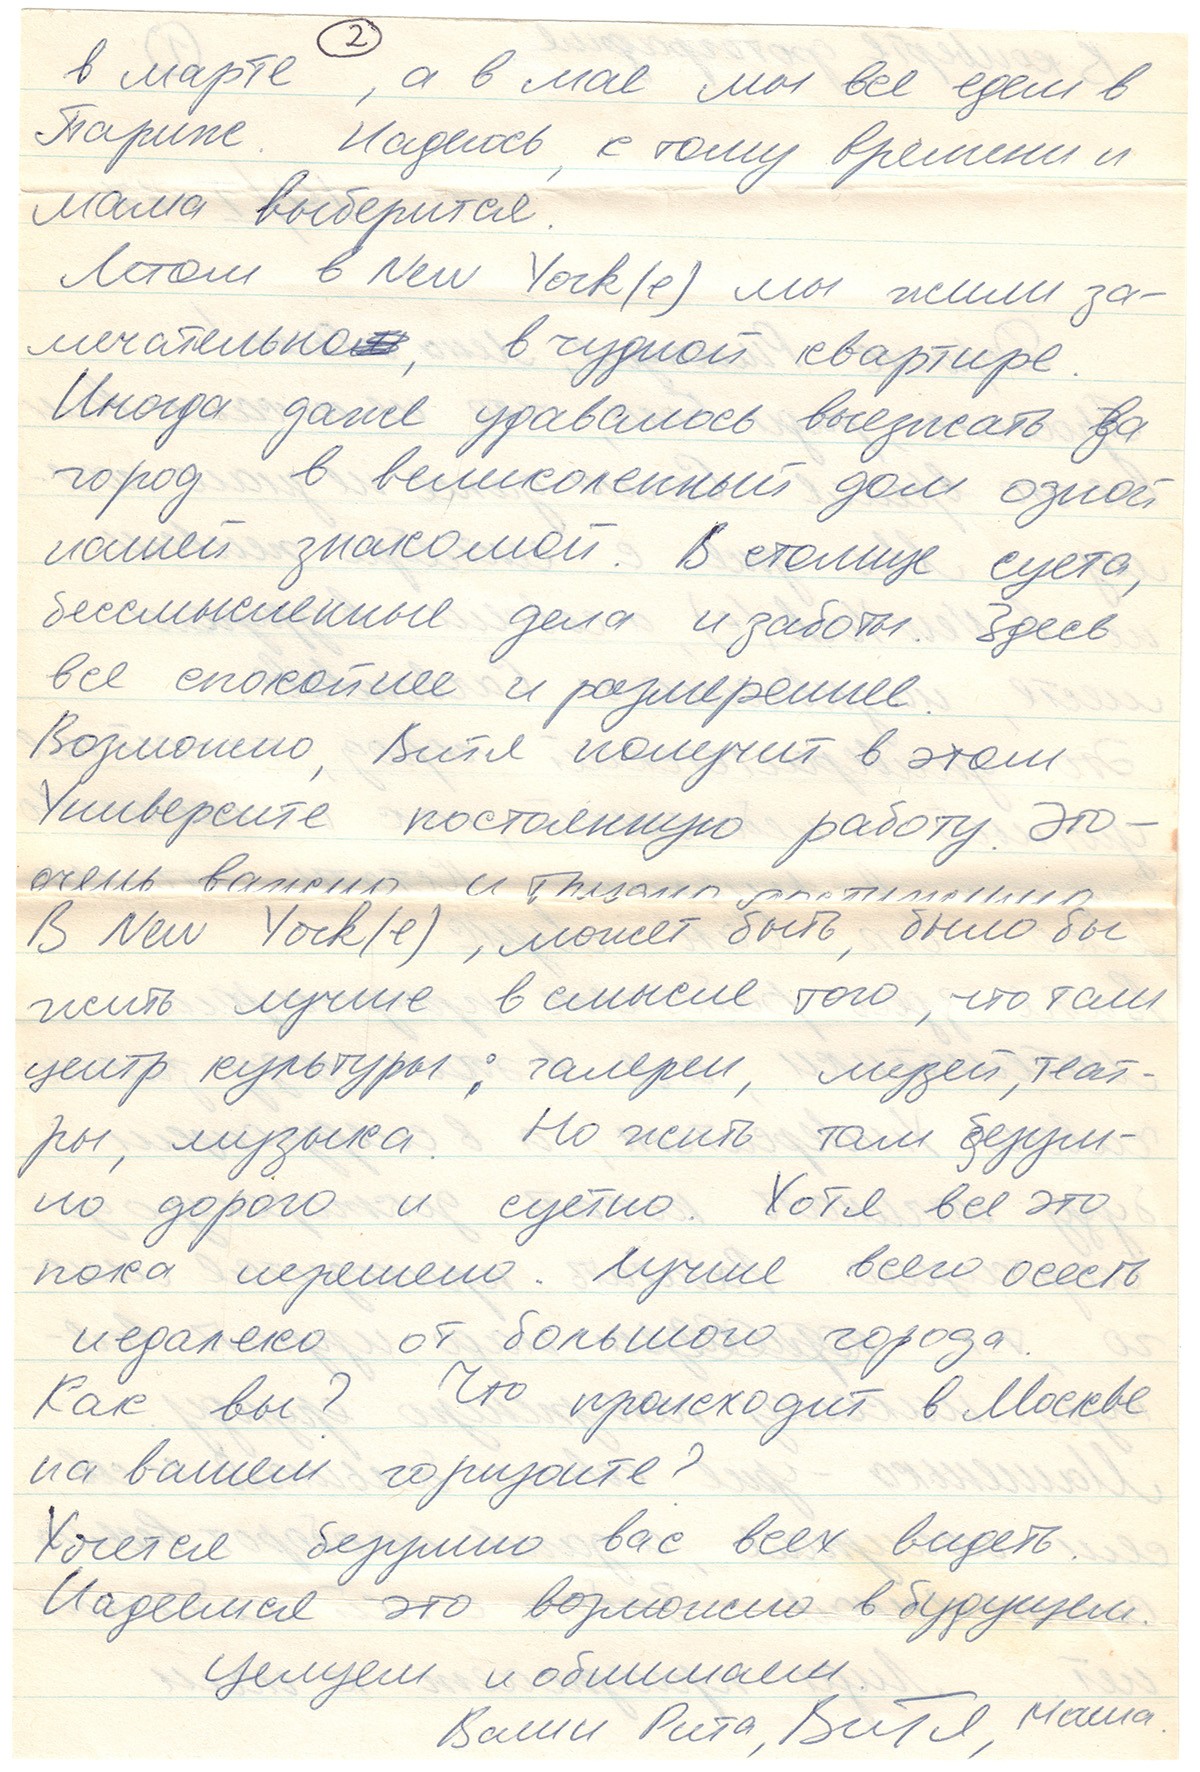 2
в марте, а в мае мы все едем в
Париж. Надеюсь, к тому времени и
мама выберится.
Летом в New York(е) мы жили за-
мечательно, в чудной квартире.
Иногда даже удавалось выезжать за
город в великоленный дом одной
нашей знакомой. В столице суета,
бессмысленные дела и заботы. Здесь
все спокойнее и размереннее.
Возможно, Витя получит в этом
Университе постоянную работу. Это –
очень важно и
В New York(е), может быть, было бы
жить лучше в смысле того, что там
центр культуры: галереи, музей, теат-
ры, музыка. Но жить там безум-
но дорого и суетно. Хотя все это
пока нерешено. Лучше всего осесть
недалеко от большого города.
Как вы? Что происходит в Москве
на вашем горизонте?
Хочется безумно вас всех видеть.
Надеемся это возможно в будущем.
Целуем и обнимаем.
Ваши Рита, Витя, Маша.